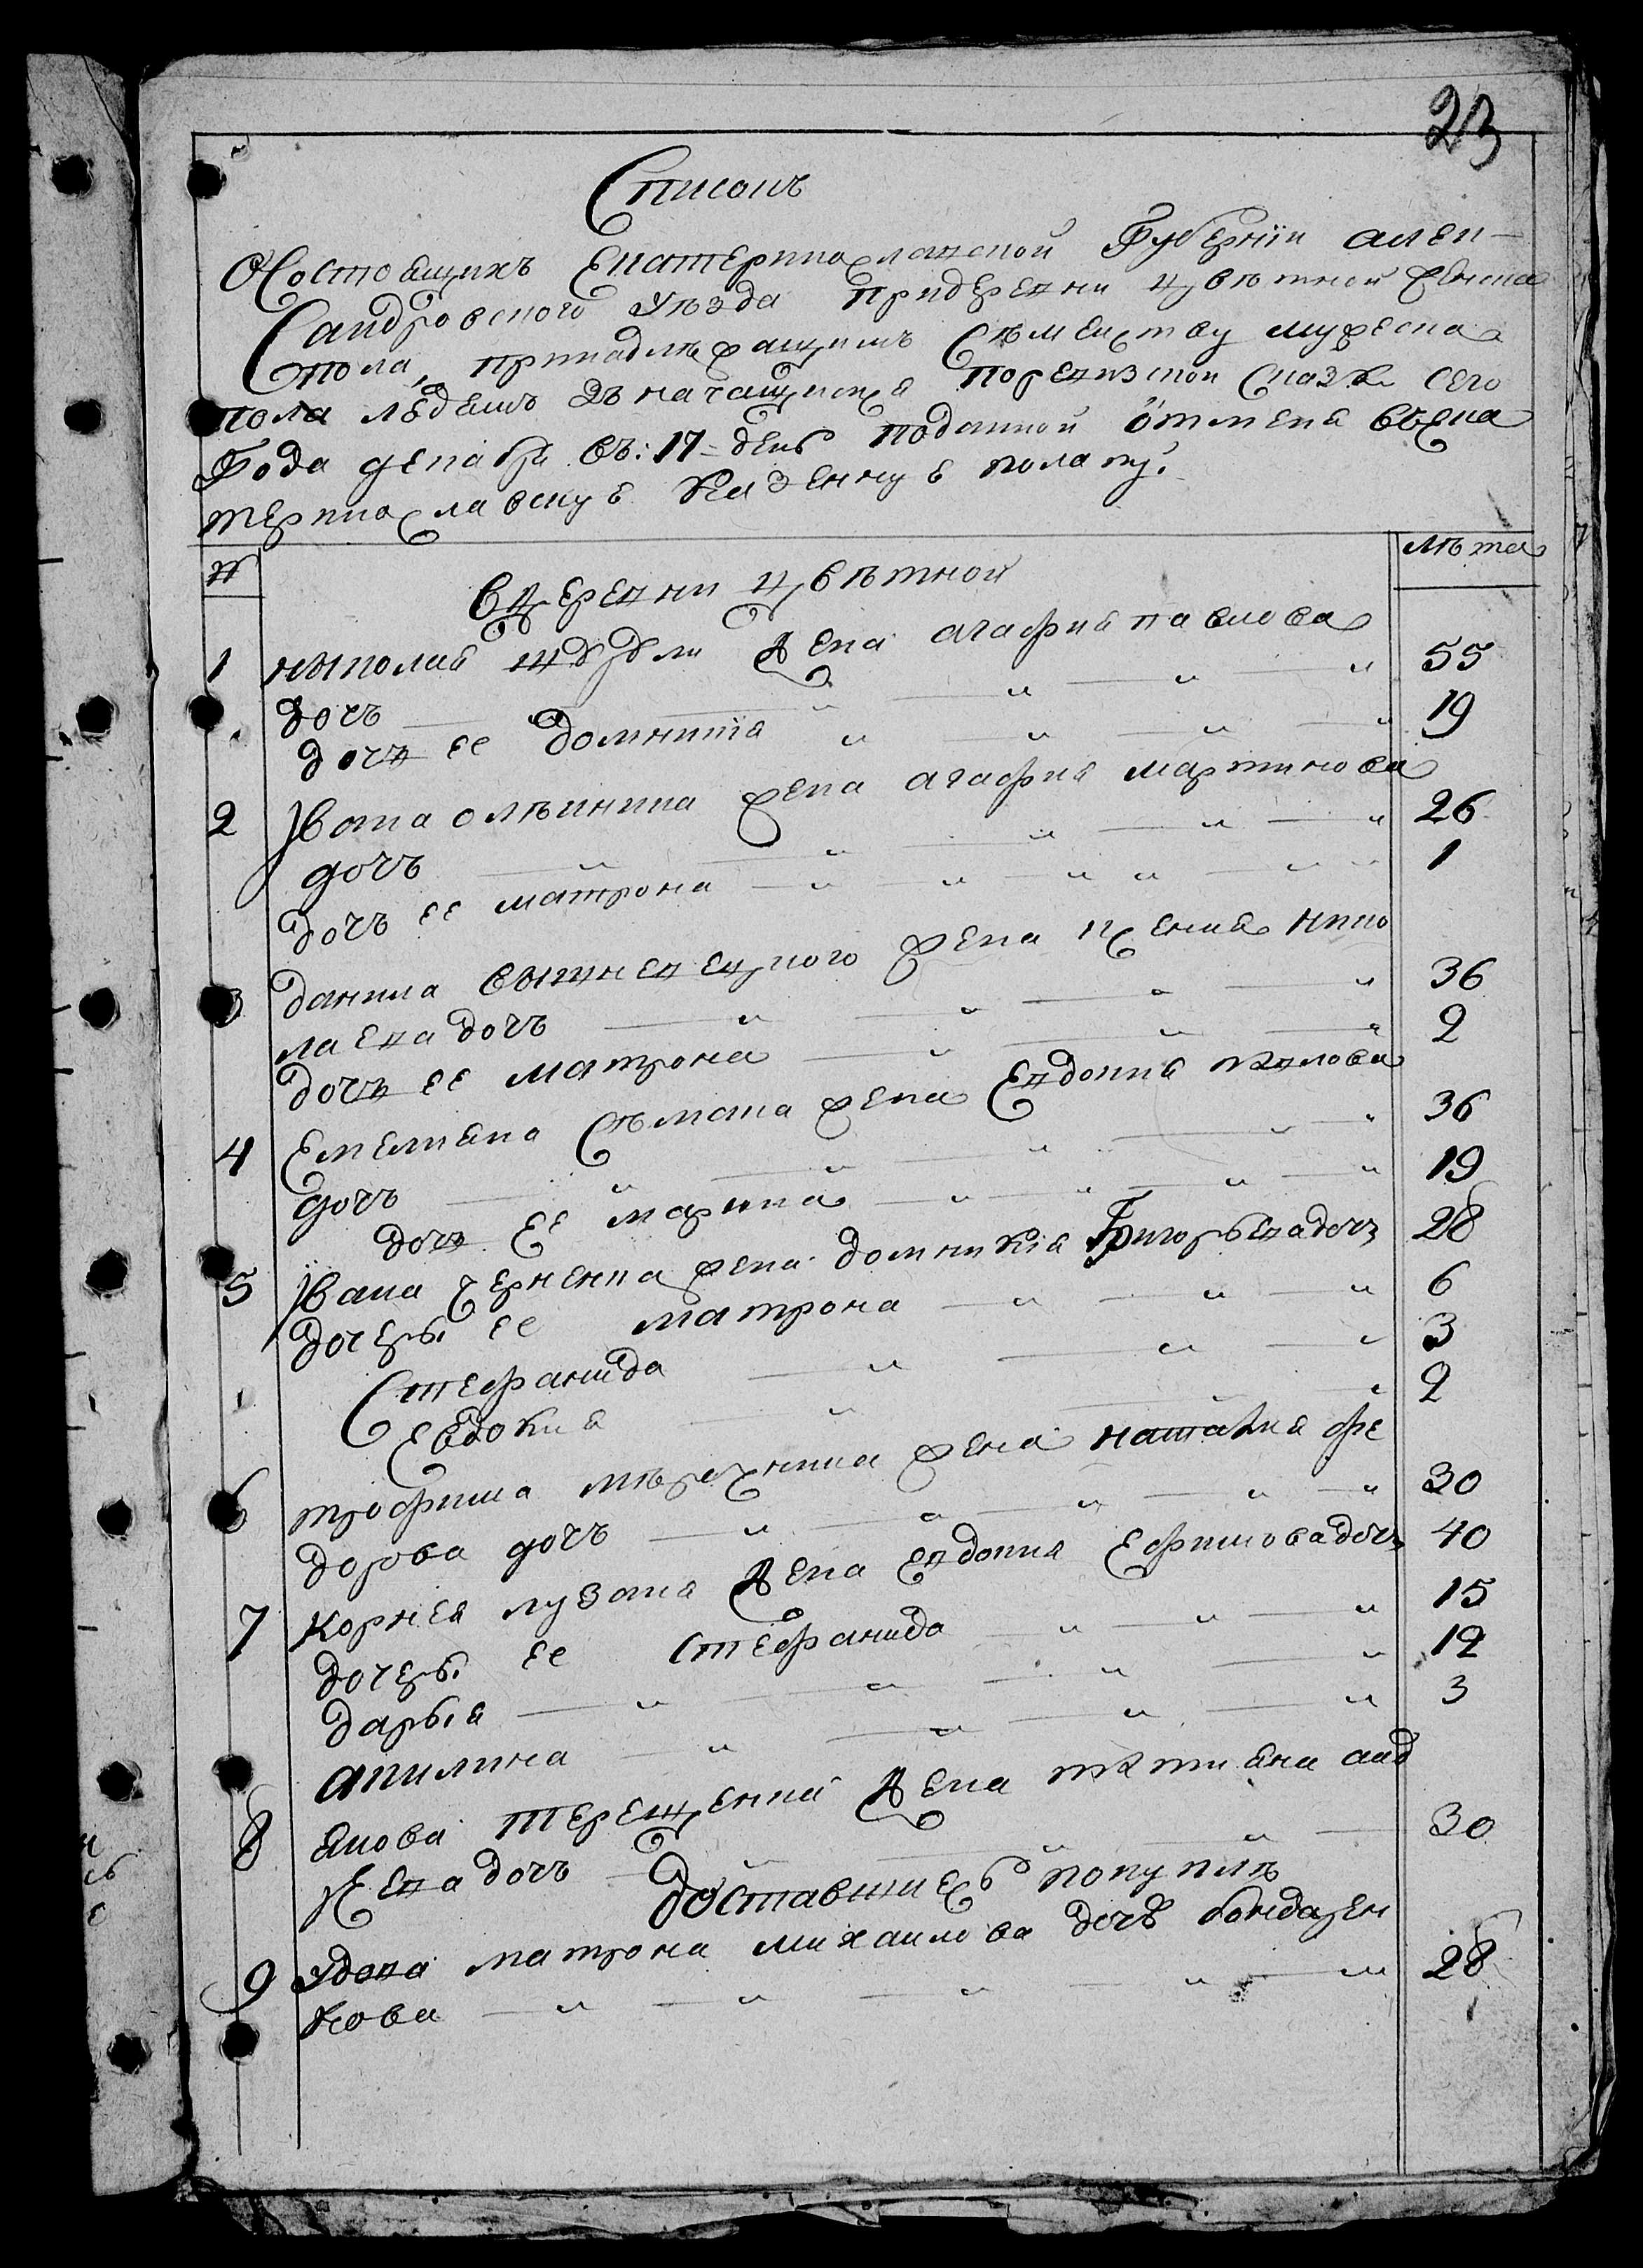 23
Списокъ
О состоящихъ Екатеринославской Губернїи алек-
Сандровского уѣзда придеревни цвѣтной женска
пола, принадлежащимъ Сѣмейству мужеска
пола людямъ значащимся поревизской Сказкѣ сего
Года декабря въ: 17 = день поданной отменя въека
теринославскую Казенную полату.
№ лѣта
вдеревни цвѣтной
1 николая жена агафия павлова
дочь 55
дочь ее домникїя 19
2 Ивана олѣйника жена агафия мартинова
дочь 26
дочь ее матрона 1
3 данила жена ксения нико
лаева дочь 36
дочь ее матрона 2
4 Емелияна жена Евдокия павлова
дочь 36
дочь Ее марина 19
5 Ивана Черненка жена домникїя Григорьева дочь 28
дочери ее матрона 6
Стефанида 3
Евдокия 2
6 трофима жена наталия фе
дорова дочь 30
7 корнея лузана жена евдокия Ефимова дочь 40
дочери ее Стефанида 15
дарья 12
акилина 3
8 якова терещенка жена татияна анд
реева дочь 30
доставшиесь покупкѣ
9 удова матрона михаилова дочь бондарен
кова 28